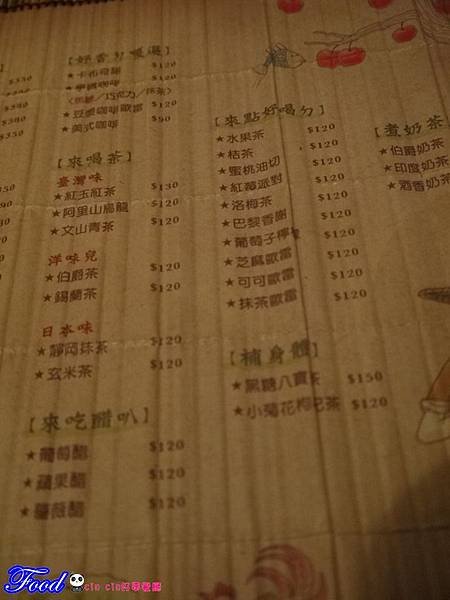 $350
$350
$380
$350
【好香ㄉ慢選】
★卡布奇諾 $120
★拿鐵咖啡 $120
(焦糖/巧克力/抹茶)
★豆漿咖啡歐蕾 $120
★美式咖啡 $90
【來喝茶】
臺灣味
★紅玉紅茶 $130
★阿里山烏龍 $120
★文山青茶 $120
洋味兒
★伯爵茶 $120
★錫蘭茶 $120
日本味
★靜岡抹茶 $120
★玄米茶 $120
【來吃醋叭】
★葡萄醋 $120
★蘋果醋 $120
★薔薇醋 $120
【來點好喝ㄉ】
★水果茶 $120
★桔茶 $120
★蜜桃油切 $120
★紅莓派對 $120
★洛梅茶 $120
★巴黎香榭 $120
★葡萄子檸 $120
★芝麻歐蕾 $120
★可可歐蕾 $120
★抹茶歐蕾 $120
【補身體】
★黑糖八寶茶 $150
★小菊花枸杞茶 $120
【煮奶茶
★伯爵奶茶
★印度奶茶
★酒香奶茶
Food
cin cin好幸餐廳